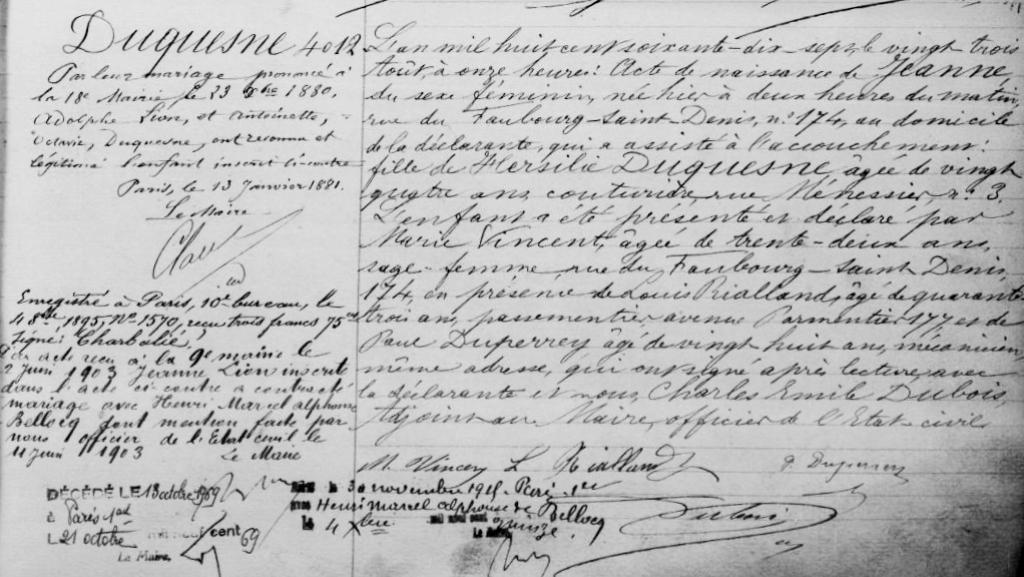 Duquesne 4012
Par leur mariage prononcé à
la 18e Mairie le 23 Xbre 1880,
Adolphe Lion, et Antoinette,
Octavie, Duquesne, ont reconnu et
légitimé l'enfant inscrit ci-contre
Paris, le 13 Janvier 1881.
Le Maire
Enregistré à Paris, 10e bureau, le
1895, No 1570, reçu trois francs 75
signé: Charbolié,
Par acte reçu à la 9e mairie le
2 Juin 1903 Jeanne Lion inscrite
dans l'acte ci-contre a contracté
mariage avec Henri Marcel alphonse
Bellocq dont mention faite par
nous officier de l'Etat civil le
11 Juin 1903 Le Maire
DÉCÉDÉ LE 18 octobre 1969
à Paris
L 21 octobre cent 69
Le Maire.
L'an mil huit cent soixante-dix-sept, le vingt trois
août, à onze heures: Acte de naissance de Jeanne,
du sexe féminin, née hier à deux heures du matin,
rue du Faubourg-Saint Denis, n: 174, au domicile
de la déclarante, qui a assisté à l'accouchement:
fille de Hersilie Duquesne, âgée de vingt
quatre ans, couturière, rue Ménessier, n: 3.
L'enfant a été présenté et déclaré par
Marie Vincent, âgée de trente-deux ans,
sage-femme, rue du Faubourg-Saint Denis,
174, en présence de Louis Rialland, âgé de quarante
trois ans, passementier, avenue Parmentier 177, et de
Paul Duperrey âgé de vingt huit ans, mécanicien,
même adresse, qui ont signé après lecture, avec
la déclarante et nous, Charles Emile Dubois,
Adjoint au Maire, officier de l'Etat civil
M. Vincent L Rialland P. Duperrey
le 30 novembre 1915. Paris
avec Henri marcel alphonse de Bellocq
le 4 Xbre mil neuf cent quinze.
Le Maire
Dubois